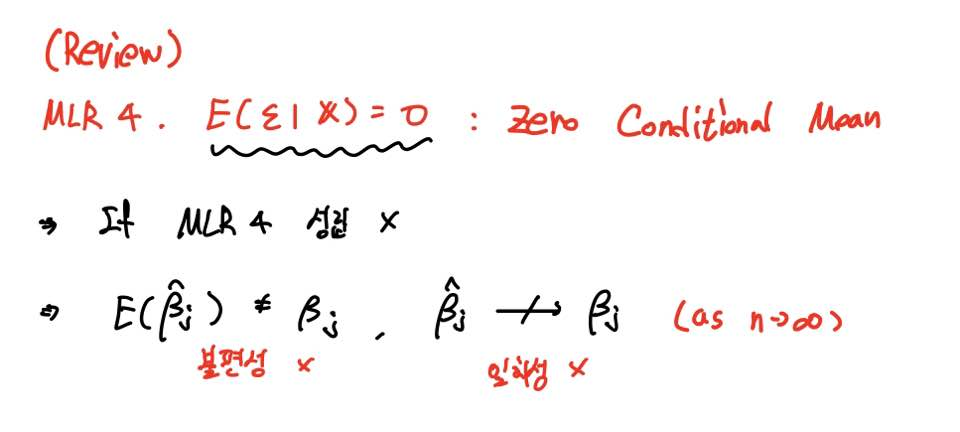 (Review)
MLR 4. E(ε|X) = 0 : Zero Conditional Mean
⇒ If MLR 4 성립 ×
⇒ E(β̂j) ≠ βj , β̂j ↛ βj (as n→∞)
불편성 × 일치성 ×